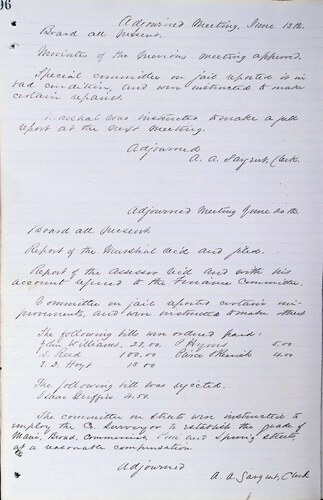 96
Adjourned Meeting, June 13th.
Board all Present.
Minutes of the previous meeting approved.
Special committee on jail reported it in
bad condition, and were instructed to make
certain repairs.
Marshal was instructed to make a full
report at the next meeting.
Adjourned
A. A. Sargent, Clerk.
Adjourned Meeting June 20th.
Board all Present.
Report of the Marshal read and filed.
Report of the Assessor read and with his
account referred to the Finance Committee.
Committee on jail reported certain im-
provements, and were instructed to make others
The following bills were ordered paid:
John Williams, 28.00, P Hyms 5.00
S. Reed 100.00 4.00
E. D. Hoyt 10.00
The following bill was rejected.
Isaac Griffin 4.50.
The committee on streets were instructed to
employ the Co. Surveyor to establish the grade of
Main, Broad, Commercial, Pine and Spring streets
at a reasonable compensation.
Adjourned
A. A. Sargent, Clerk